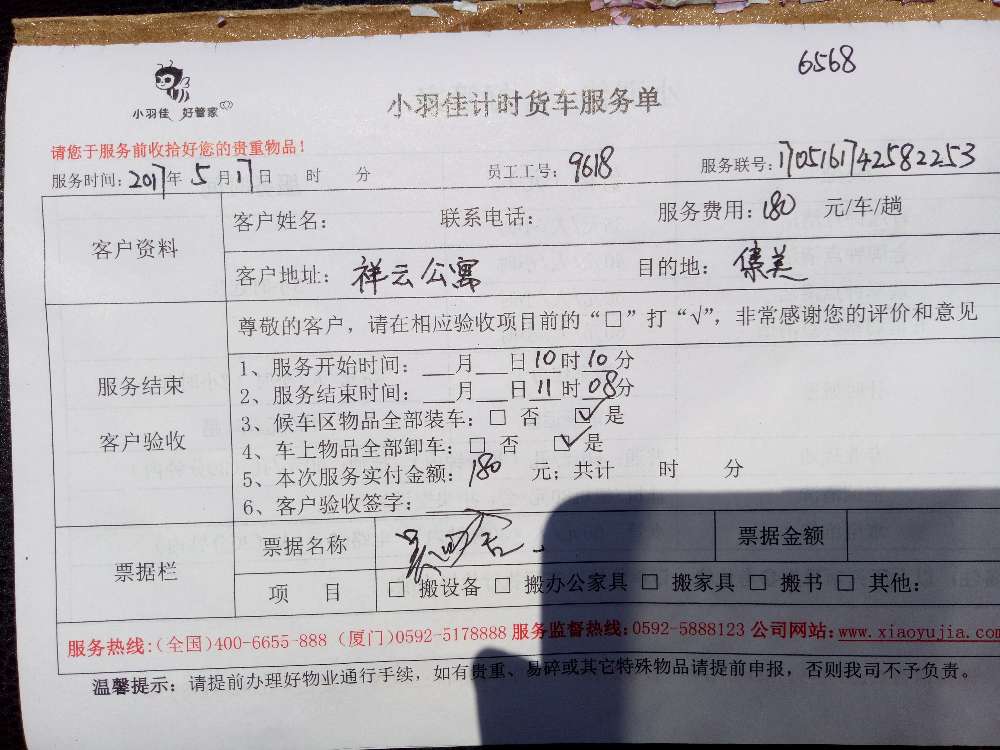 6568
小羽佳 好管家
小羽佳计时货车服务单
请您于服务前收拾好您的贵重物品！
服务时间：2017年 5 月 17 日 时 分 员工工号：9618 服务联号：1705161742582253
客户资料
客户姓名： 联系电话： 服务费用：180 元/车/趟
客户地址：祥云公寓 目的地：集美
服务结束
客户验收
尊敬的客户，请在相应验收项目前的“□”打“√”，非常感谢您的评价和意见
1、服务开始时间：___月___日10时10分
2、服务结束时间：___月___日11时08分
3、候车区物品全部装车：□ 否 ☑ 是
4、车上物品全部卸车：□ 否 ☑ 是
5、本次服务实付金额：180 元；共计 时 分
6、客户验收签字：
票据栏
票据名称 票据金额
项 目 □ 搬设备 □ 搬办公家具 □ 搬家具 □ 搬书 □ 其他：
服务热线:(全国)400-6655-888 (厦门)0592-5178888 服务监督热线:0592-5888123 公司网站:www.xiaoyujia.com
温馨提示：请提前办理好物业通行手续，如有贵重、易碎或其它特殊物品请提前申报，否则我司不予负责。